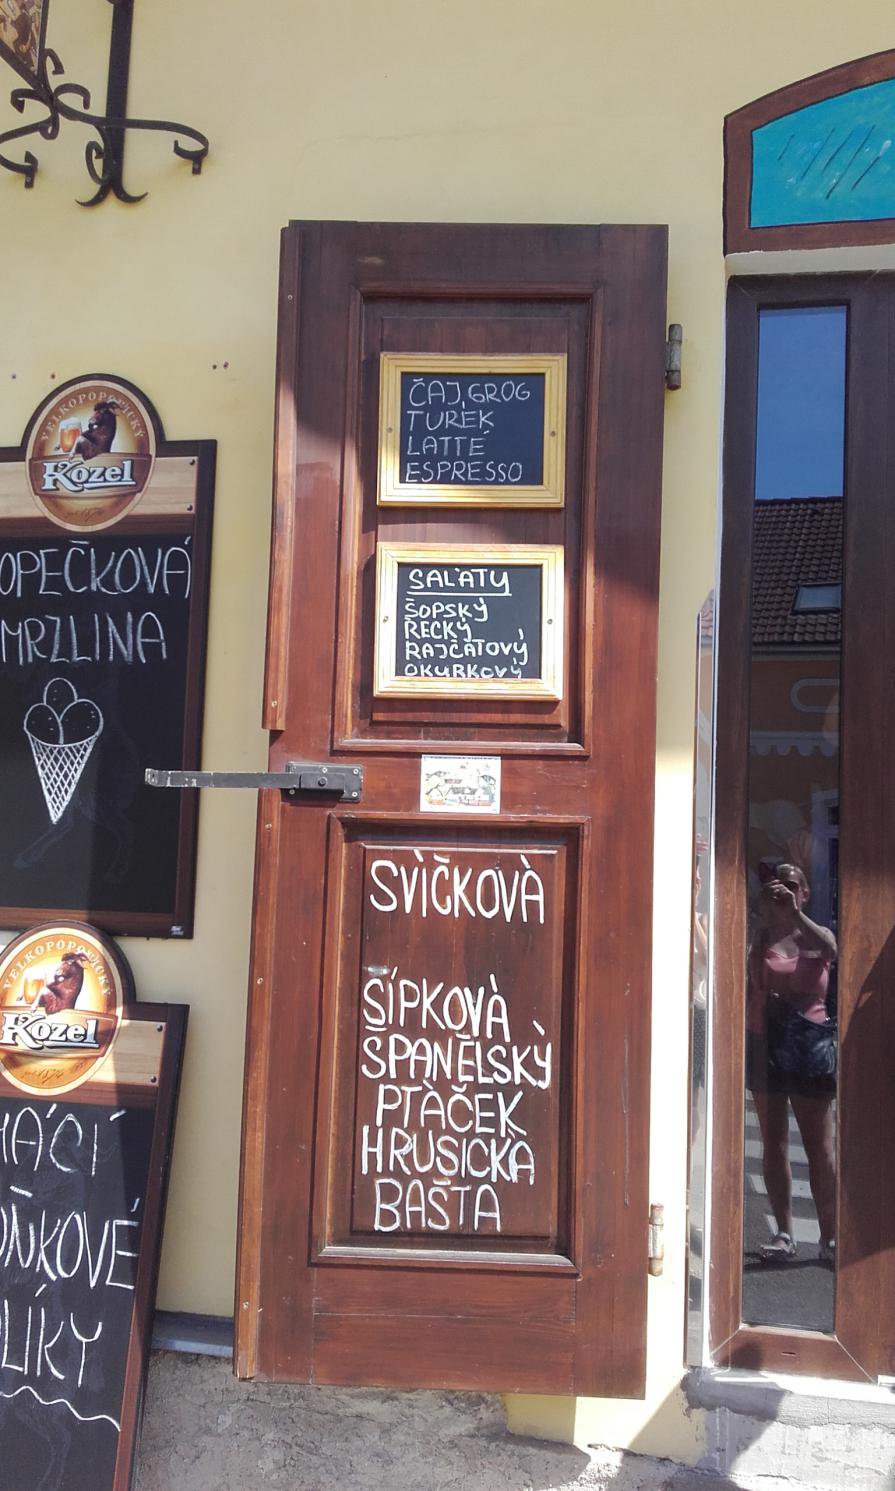 VELKOPOPOVICKÝ
Kozel
KOPEČKOVÁ
ZMRZLINA
VELKOPOPOVICKÝ
Kozel
ŇKOVÉ
LÍKY
ČAJ, GROG
TUREK
LATTÉ
ESPRESSO
SALÀTY
ŠOPSKÝ
ŘECKÝ
RAJČATOVÝ
OKURKOVÝ
SVÌČKOVÀ
ŠÍPKOVÀ
ŠPANĚLSKÝ
PTÀČEK
HRUSICKÀ
BAŠTA